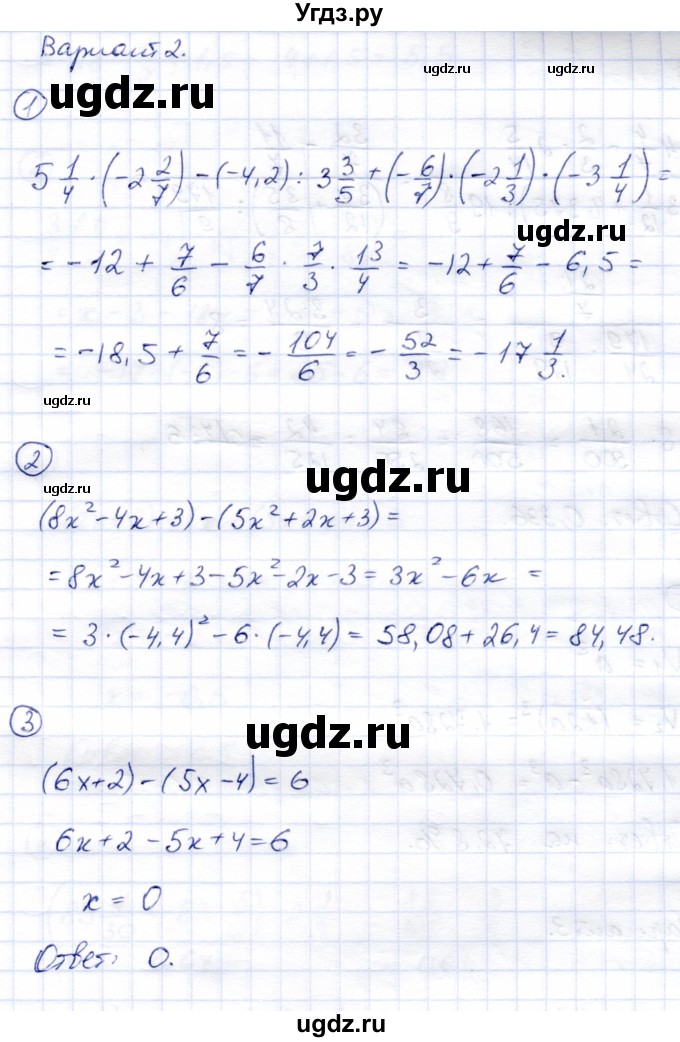 Угдз.ру
Вариант 2.
ugdz.ru
1
ugdz.ru
5 1/4 · (-2 2/7) - (-4,2) : 3 3/5 + (-6/7) · (-2 1/3) · (-3 1/4) =
ugdz.ru
= -12 + 7/6 - 6/7 · 7/3 · 13/4 = -12 + 7/6 - 6,5 =
= -18,5 + 7/6 = - 104/6 = - 52/3 = -17 1/3.
ugdz.ru
2
ugdz.ru
(8x² - 4x + 3) - (5x² + 2x + 3) =
= 8x² - 4x + 3 - 5x² - 2x - 3 = 3x² - 6x =
= 3 · (-4,4)² - 6 · (-4,4) = 58,08 + 26,4 = 84,48.
3
ugdz.ru
(6x + 2) - (5x - 4) = 6
6x + 2 - 5x + 4 = 6
x = 0
ugdz.ru
Ответ: 0.
ugdz.ru